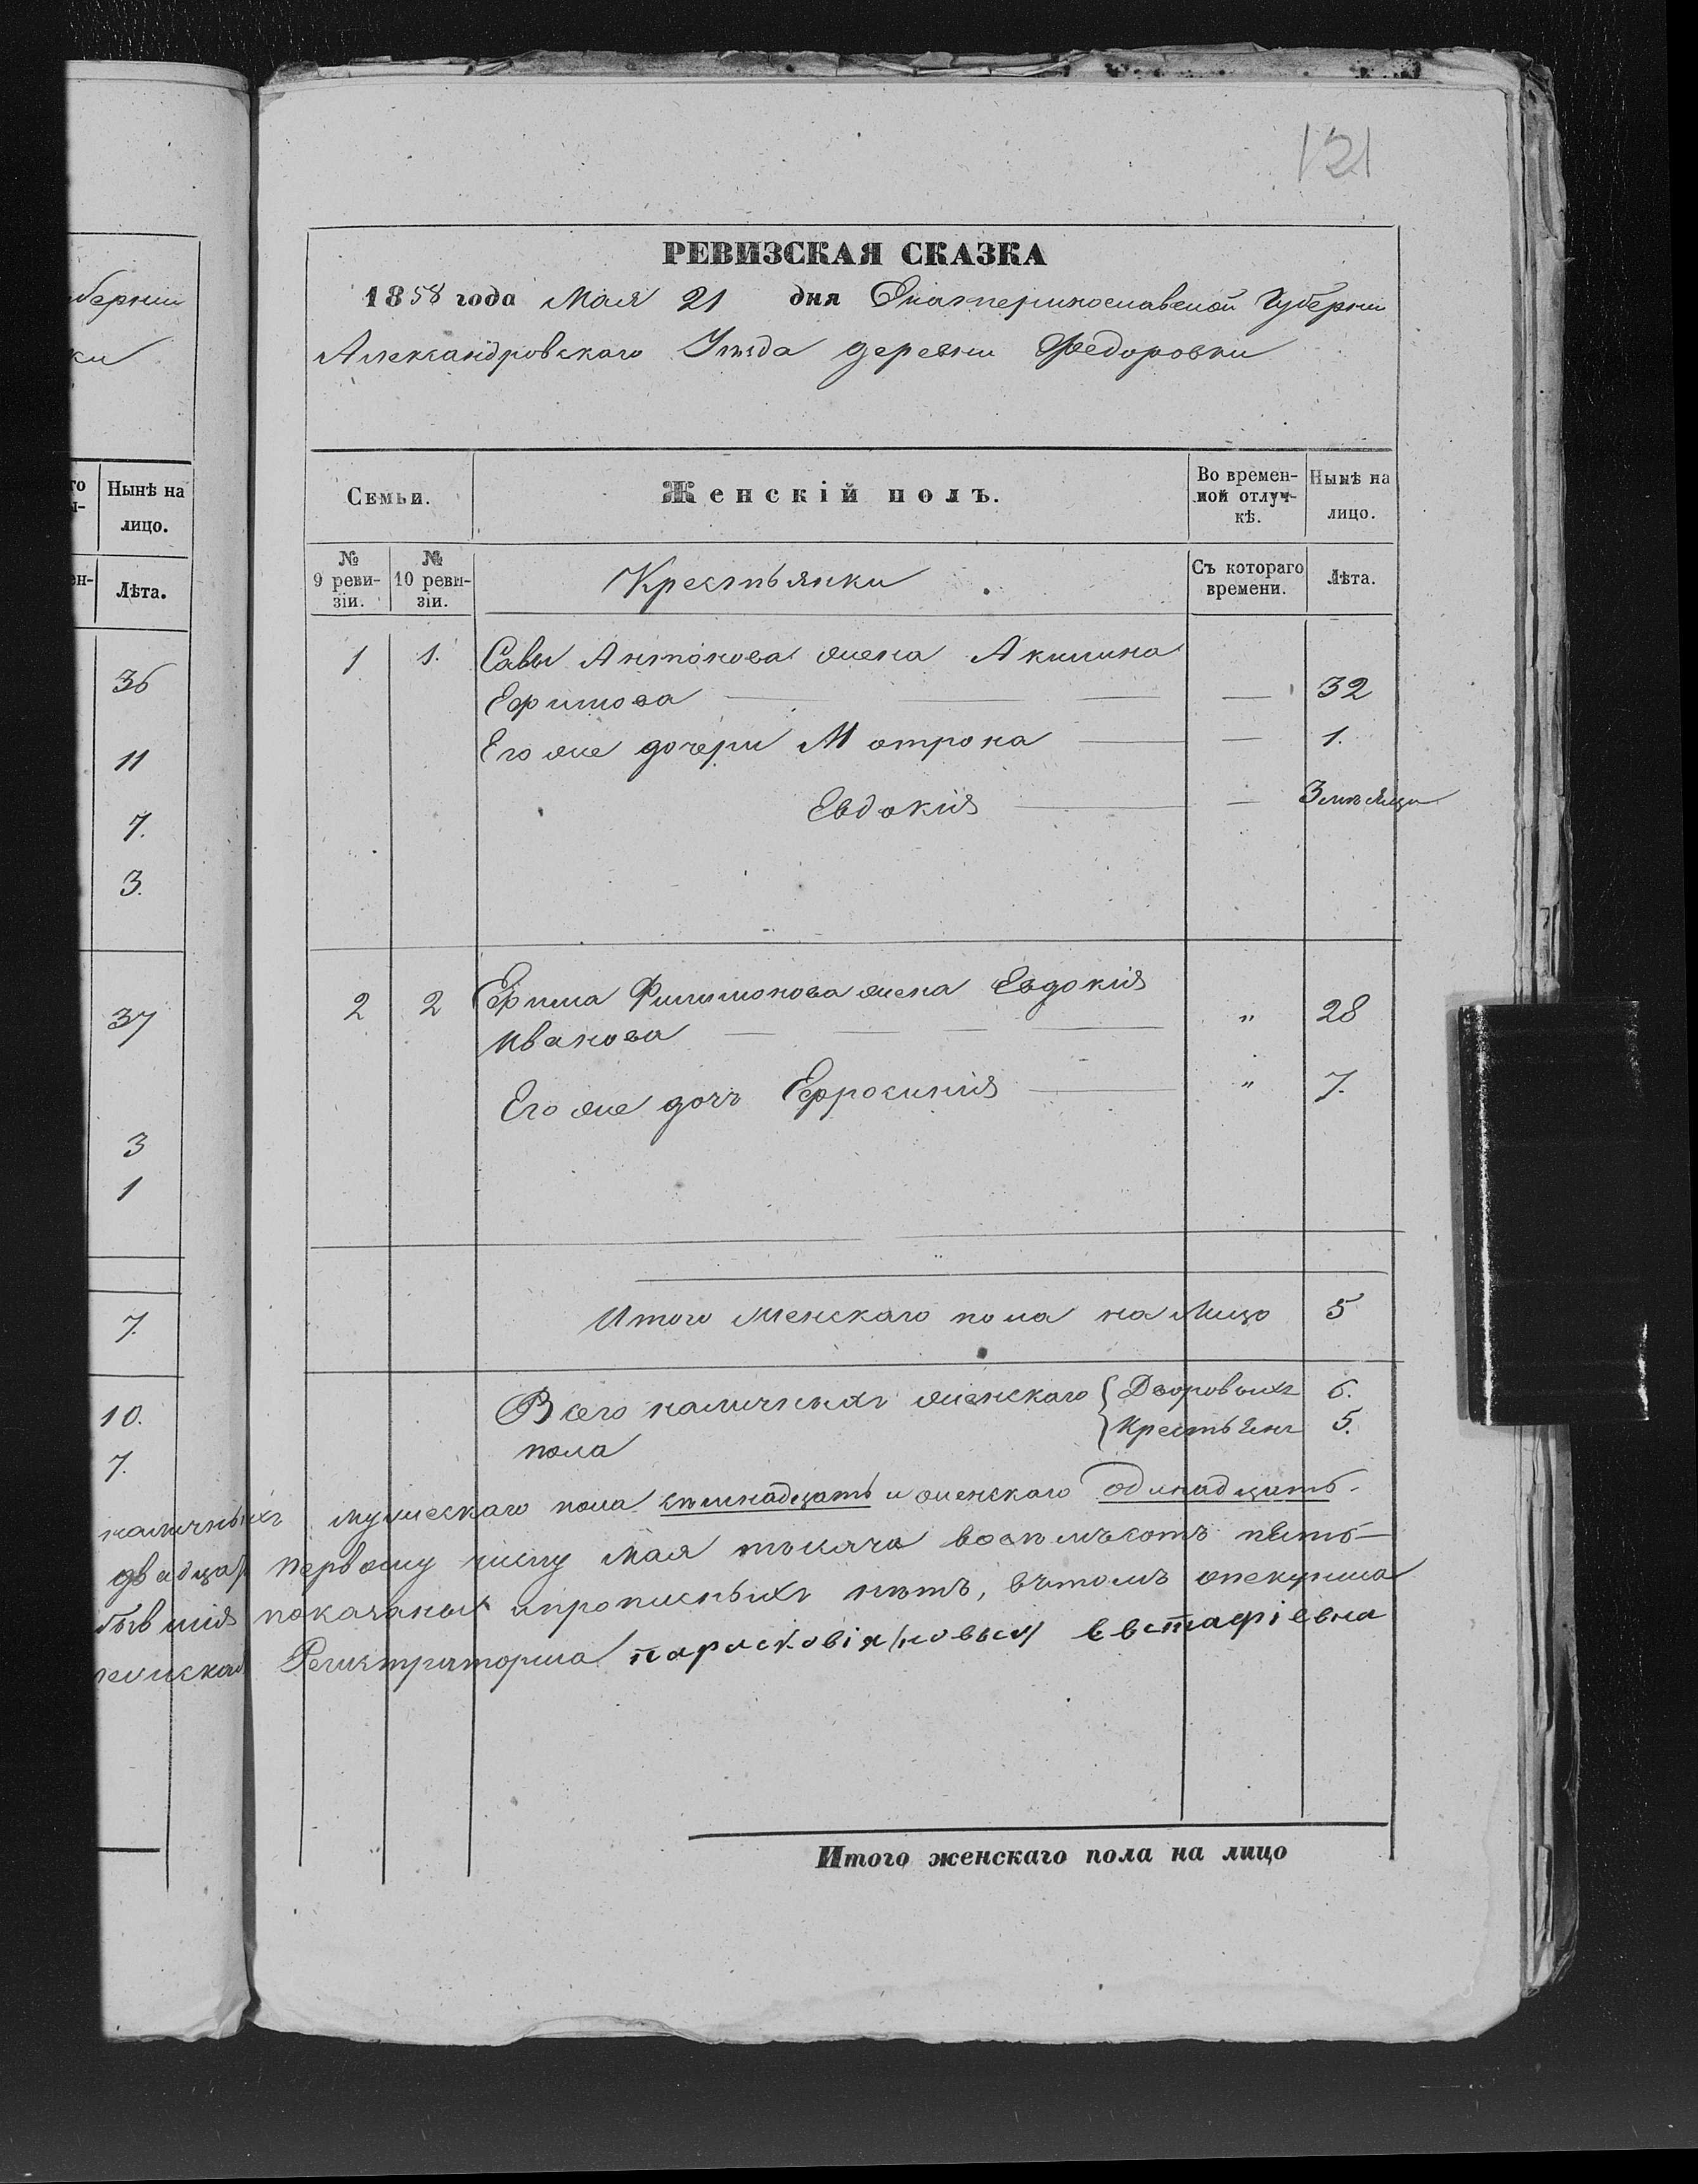 121
РЕВИЗСКАЯ СКАЗКА
1858 года Мая 21 дня Екатеринославской Губернии
Александровскаго Уѣзда деревни Федоровки
Семьи. Женскій полъ. Во времен-ной отлуч-кѣ. Нынѣ на лицо.
№ 9 реви-зіи. № 10 реви-зіи. Крестьянки Съ котораго времени. Лѣта.
1 1. Савы Антонова жена Акилина
Ефимова — 32
Его же дочери Мотрона — 1.
Евдокия — 3 мѣсяца
2 2 Ефима Филимонова жена Евдокия
Иванова „ 28
Его же дочь Ефросиния „ 7.
Итого женскаго пола на Лицо 5
Всего наличныхъ женскаго { Дворовыхъ 6.
пола { Крестьянъ 5.
наличныхъ мужескаго пола семнадцать и женскаго одинадцать.
двадцать первому числу Мая тысяча восемьсотъ пять-
показаных ипрописныхъ нѣтъ, вътомъ опекунша
Регистраторша парасковія Евстафіевна
Итого женскаго пола на лицо
берніи
ки
Нынѣ на
лицо.
Лѣта.
36
11
7.
3.
37
3
1
7.
10.
7.